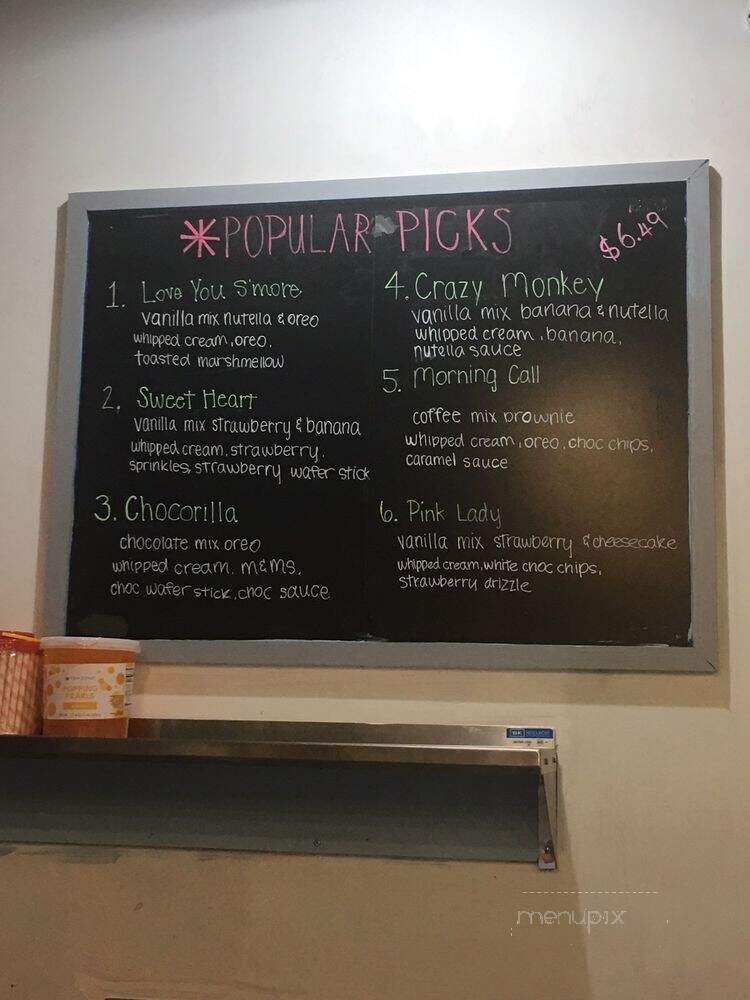 *POPULAR PICKS
$6.49
1. Love You S'more
vanilla mix nutella & oreo
whipped cream, oreo,
toasted marshmellow
2. Sweet Heart
vanilla mix strawberry & banana
whipped cream, strawberry,
sprinkles, strawberry wafer stick
3. Chocorilla
chocolate mix oreo
whipped cream, m&ms,
choc wafer stick, choc sauce
4. Crazy Monkey
vanilla mix banana & nutella
whipped cream, banana,
nutella sauce
5. Morning Call
coffee mix brownie
whipped cream, oreo, choc chips,
caramel sauce
6. Pink Lady
vanilla mix strawberry & cheesecake
whipped cream, white choc chips,
strawberry drizzle
POPPING
PEARLS
menupix